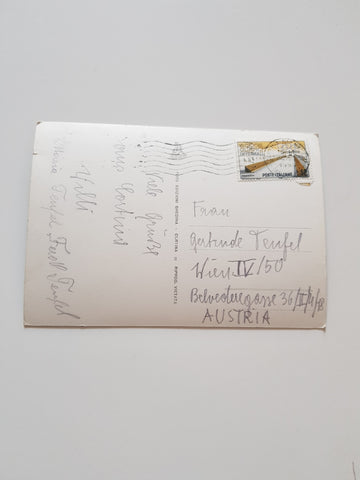 Viele Grüße
aus Cortina
Willi
Maria Teufel Ferdl Teufel
FOTO EDIZIONI GHEDINA - CORTINA
RIPROD. VIETATA
POSTE ITALIANE
Frau
Gertrude Teufel
Wien IV/50
Belvederegasse 36/II/4/18
AUSTRIA